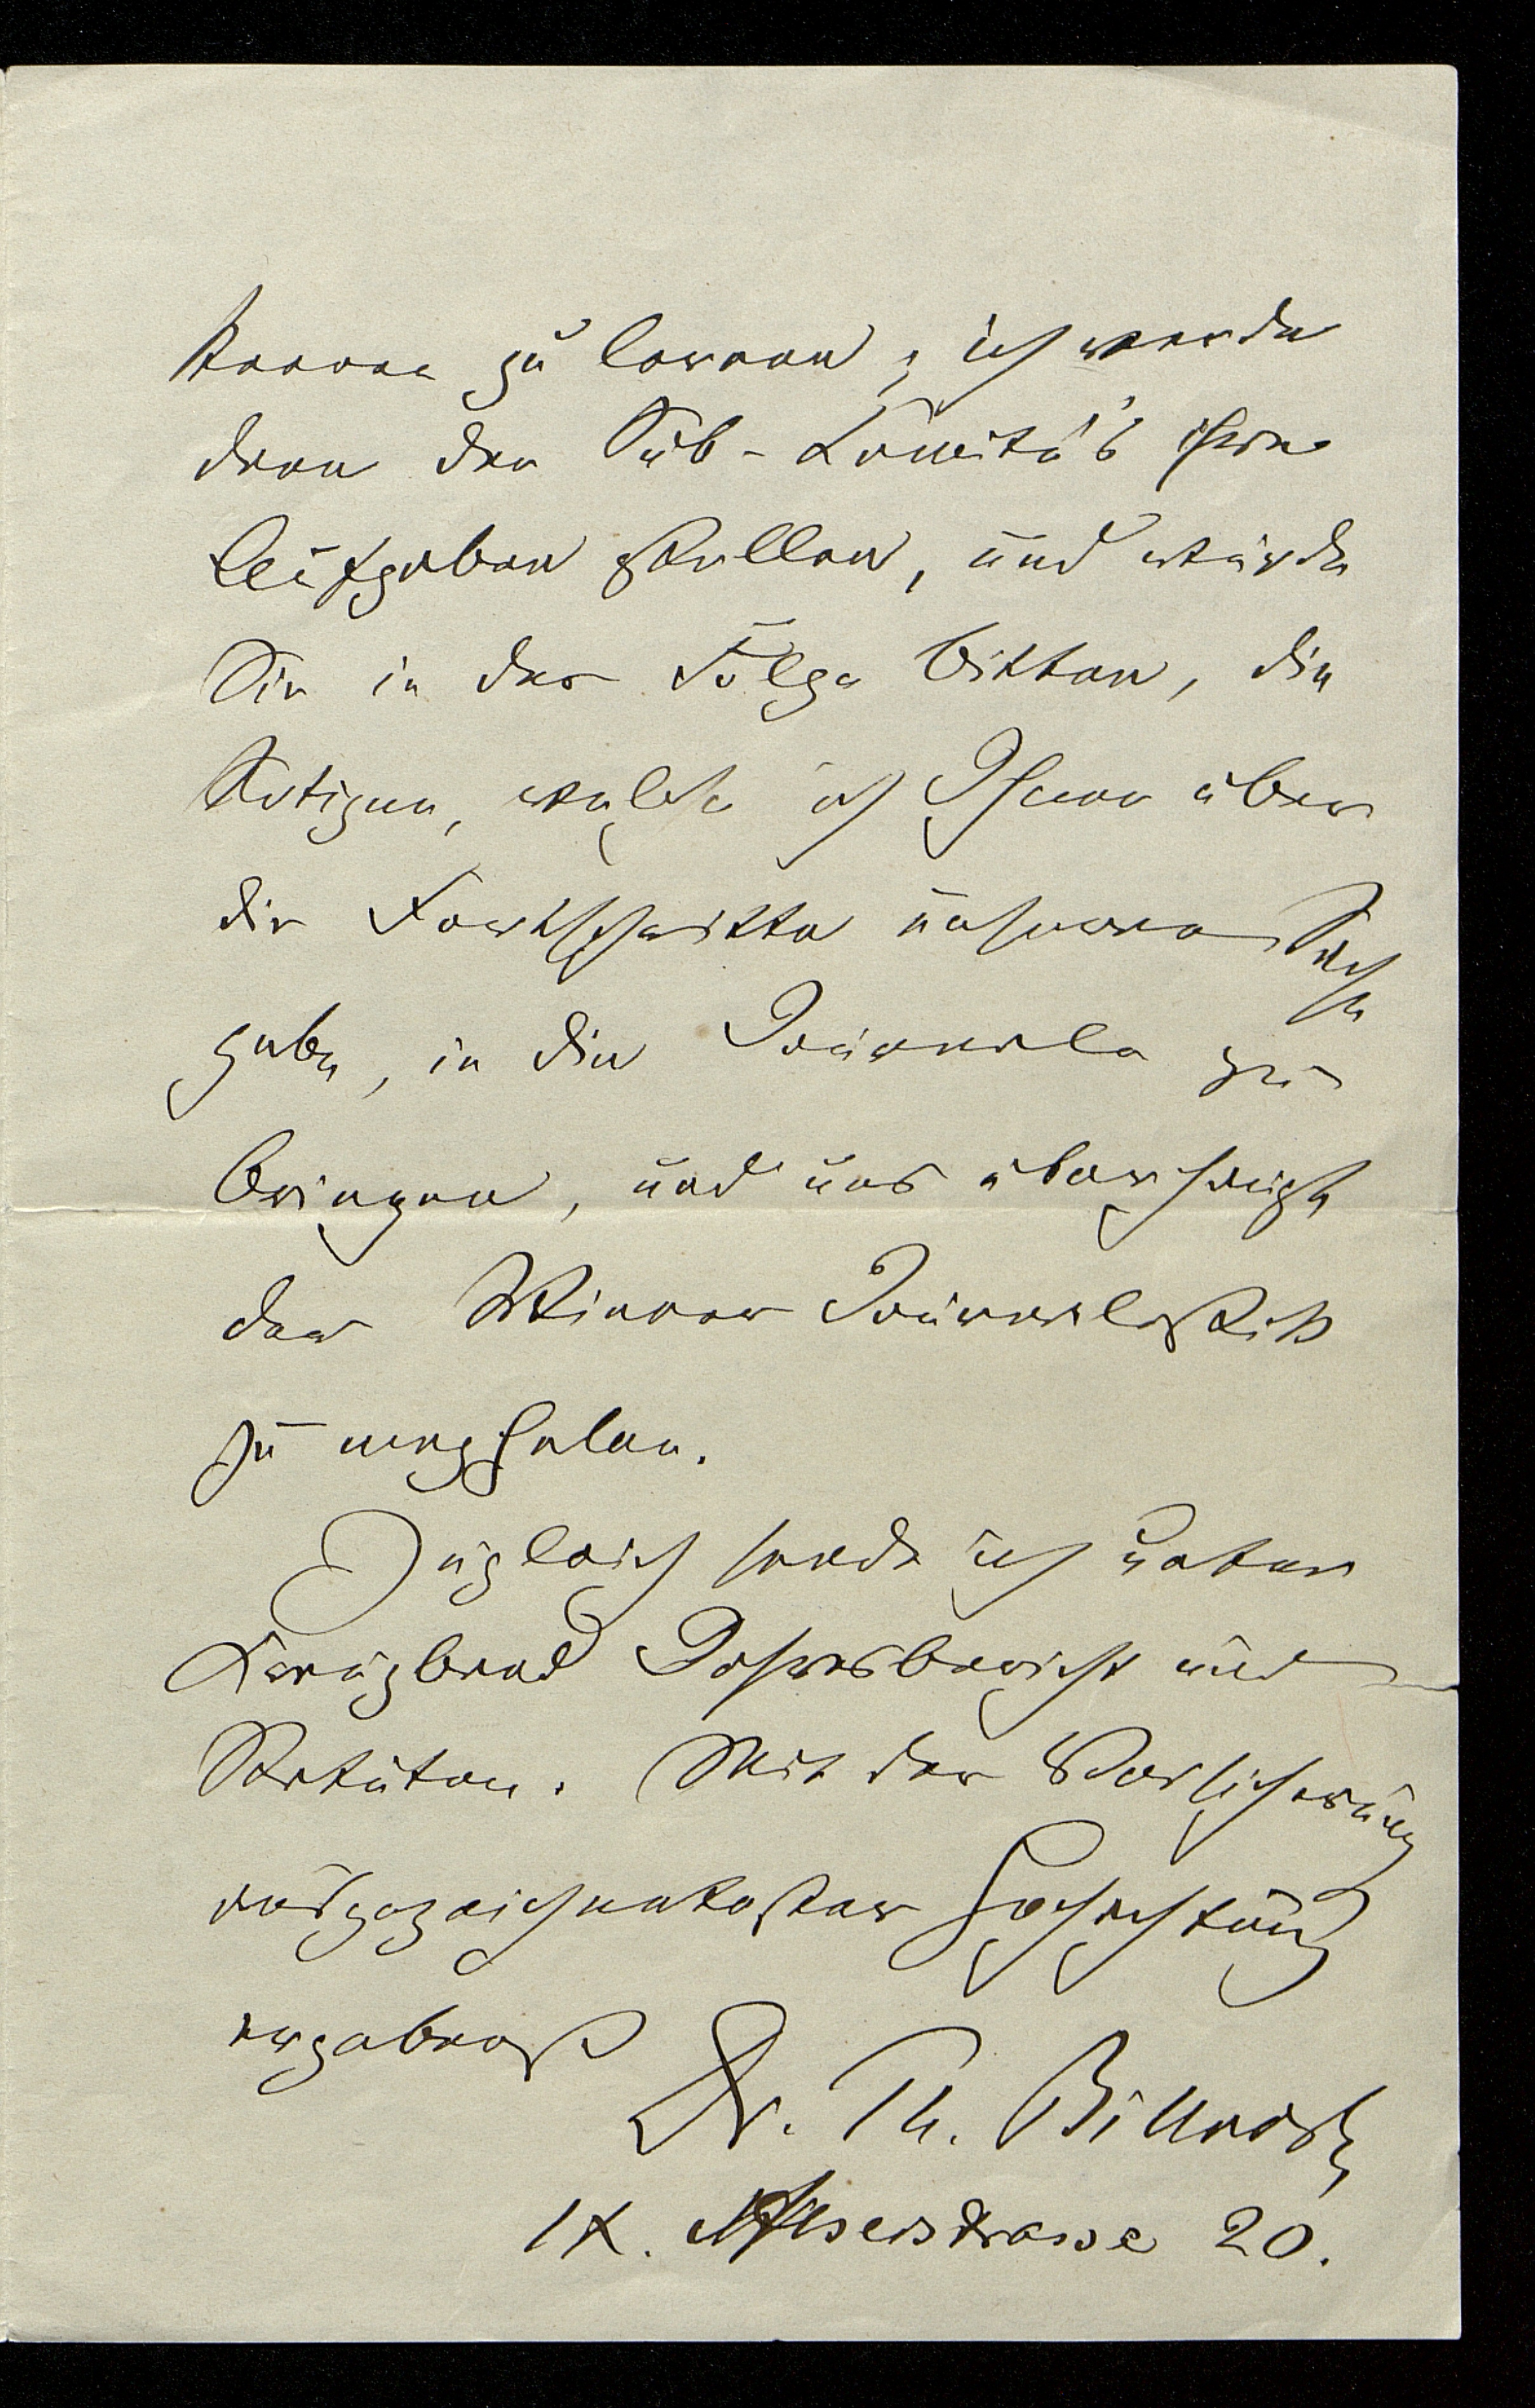 kennen zu lernen; ich werde
dann den Sub-Comité's ihre
Aufgaben stellen, und würde
Sie in der Folge bitten, die
Notizen, welche ich Ihnen über
die Fortschritte unserer Sache
gebe, in die Journale zu
bringen, und uns überhaupt
der Wiener Journalistik
zu empfehlen.
Zugleich sende ich unter
Kreuzband Jahresbericht und
Statuten. Mit der Versicherung
ausgezeichnetester Hochachtung
ergebenst
Dr. Th. Billroth
IX. Alserstrasse 20.